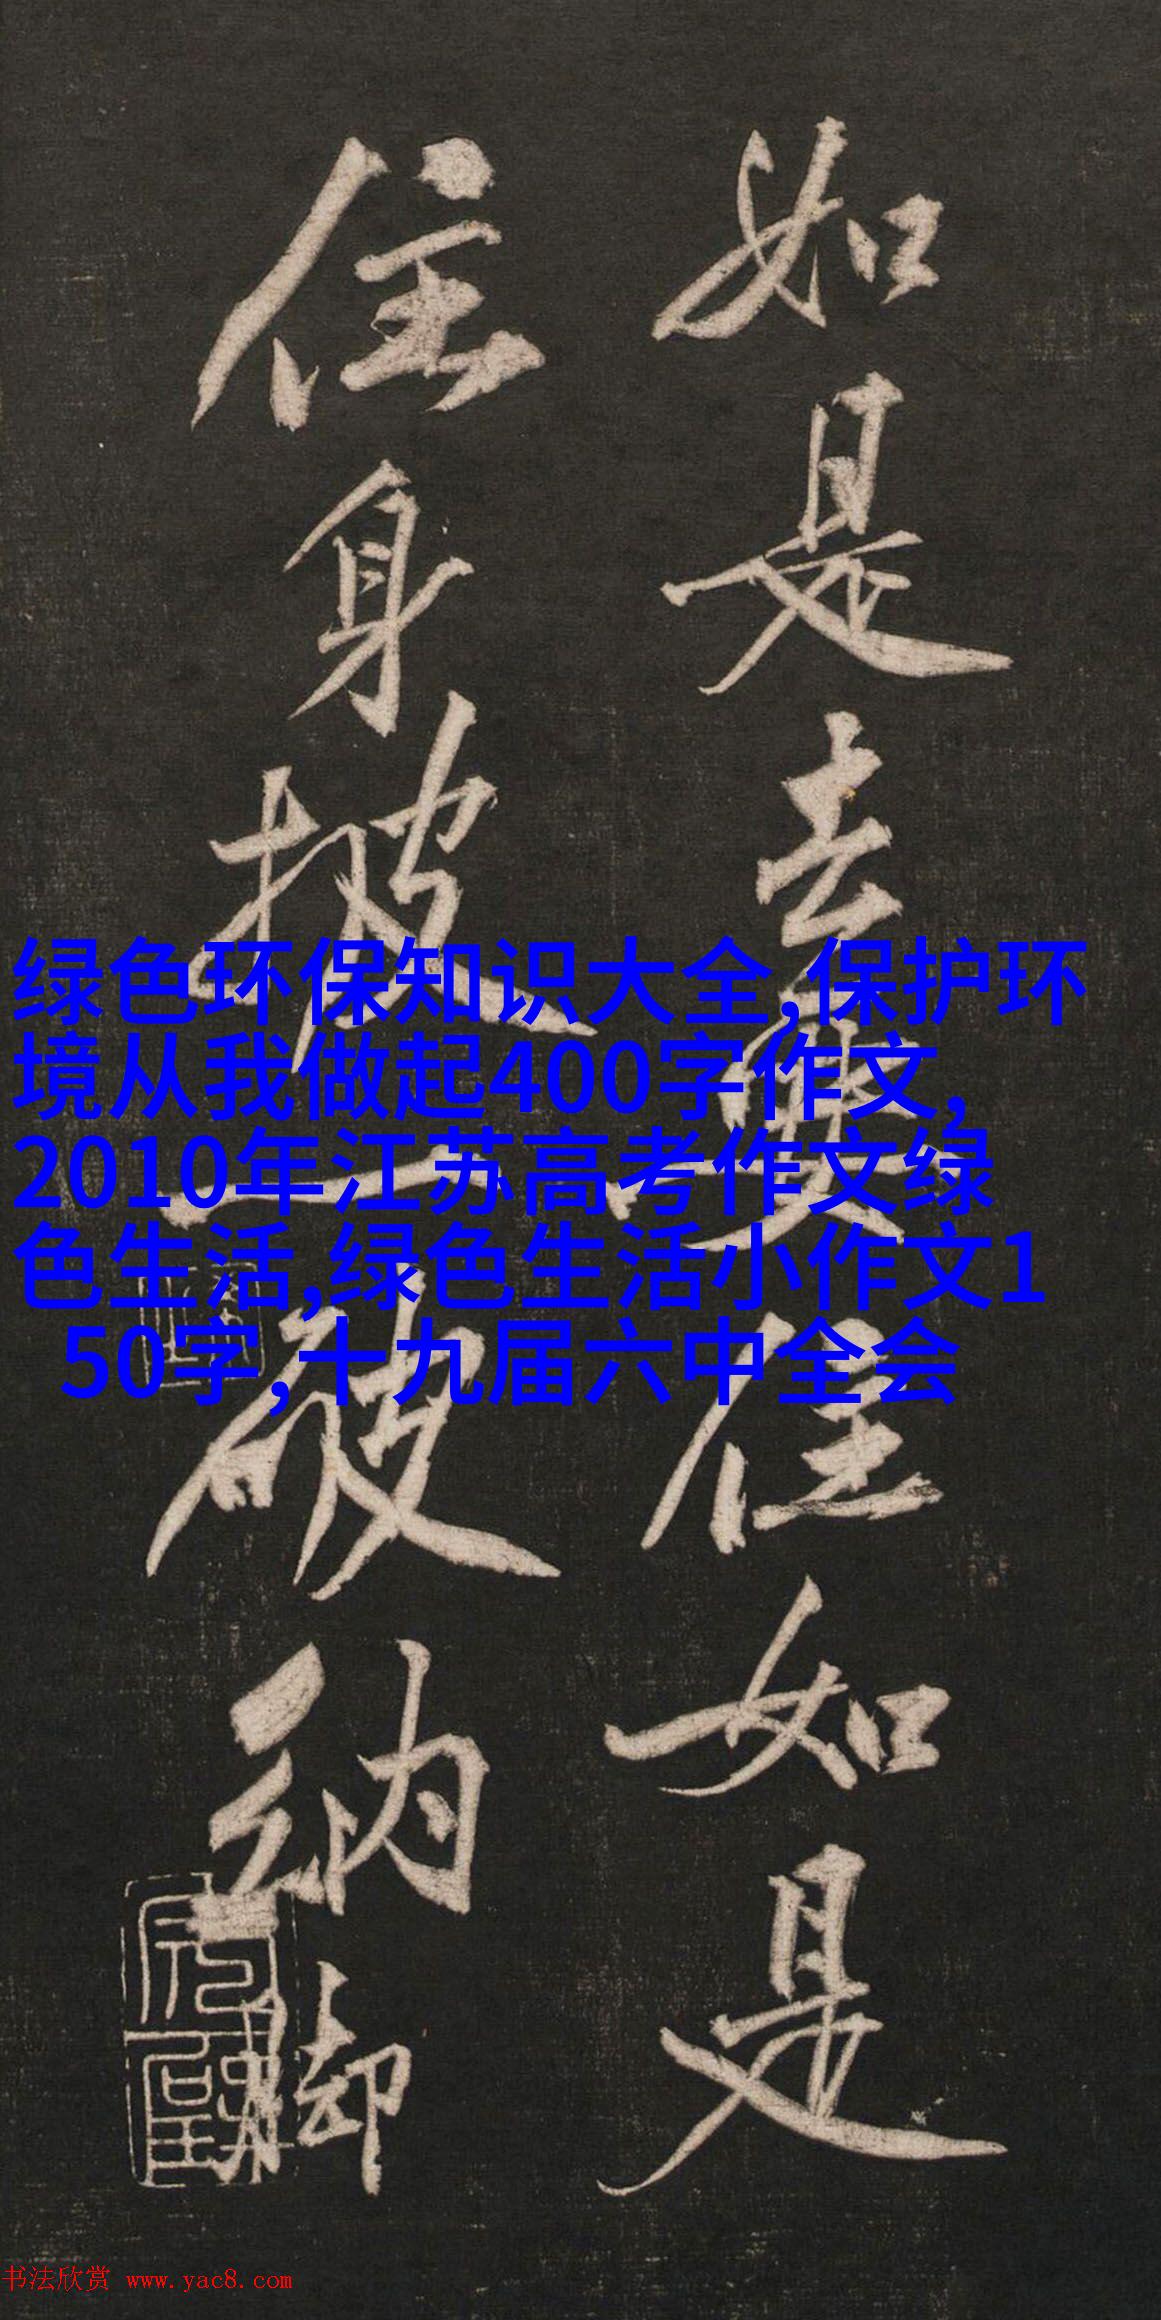 如是去住如是
住身披一破納脚
绿色环保知识大全,保护环
境从我做起400字作文,
2010年江苏高考作文绿
色生活,绿色生活小作文1
50字,十九届六中全会
书法欣赏 www.yac8.com